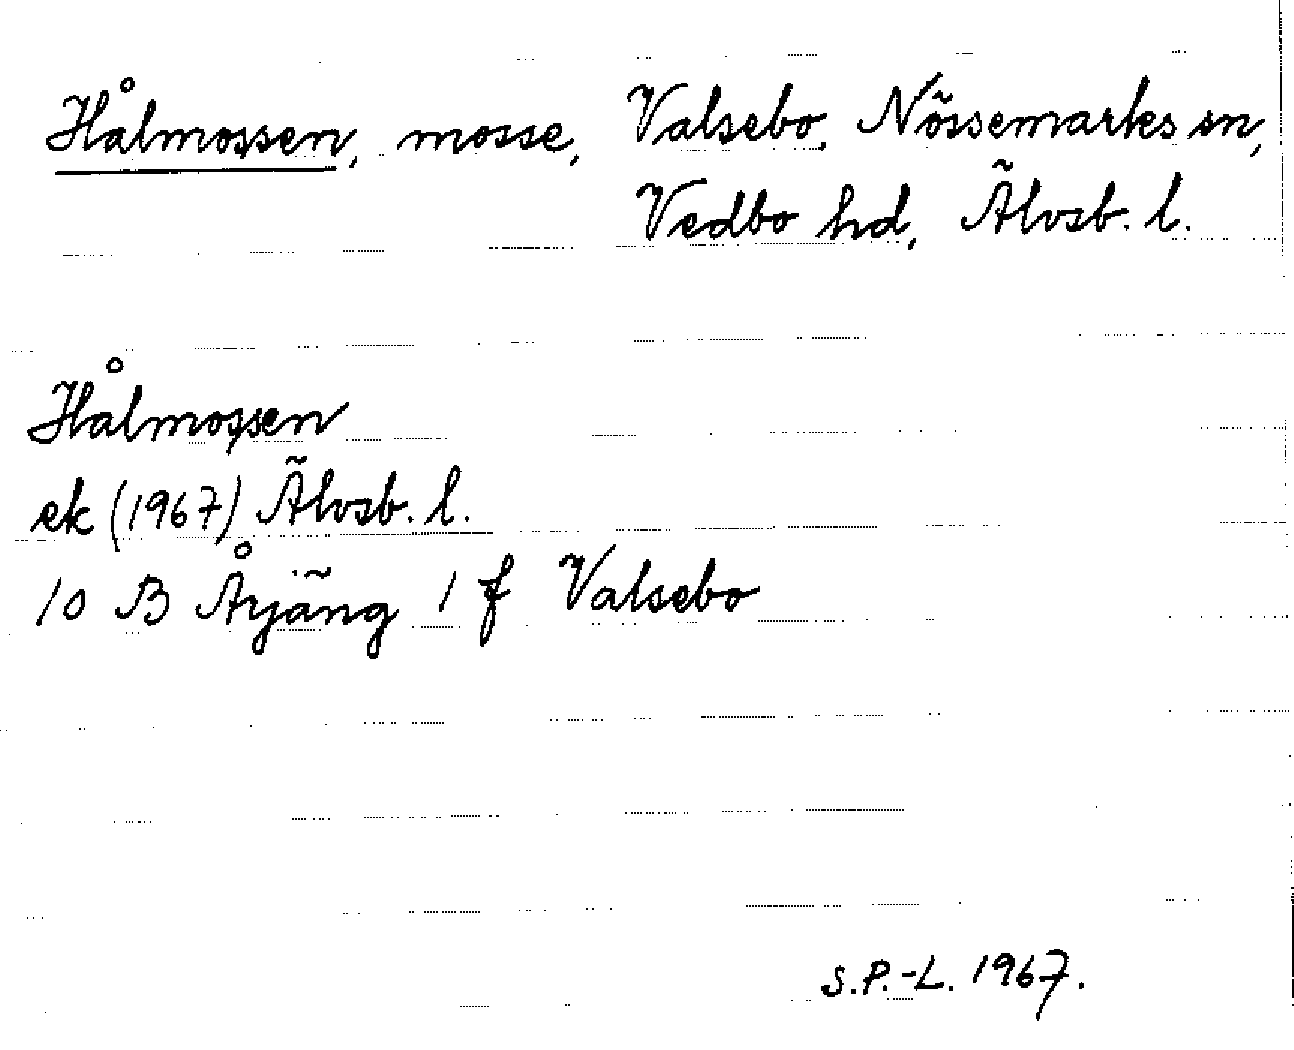 Hålmossen, mosse, Valsebo, Nössemarks sn,
Vedbo hd, Älvsb. l.
Hålmossen
ek (1967) Älvsb. l.
10 B Årjäng 1 f Valsebo
S.P.-L. 1967.